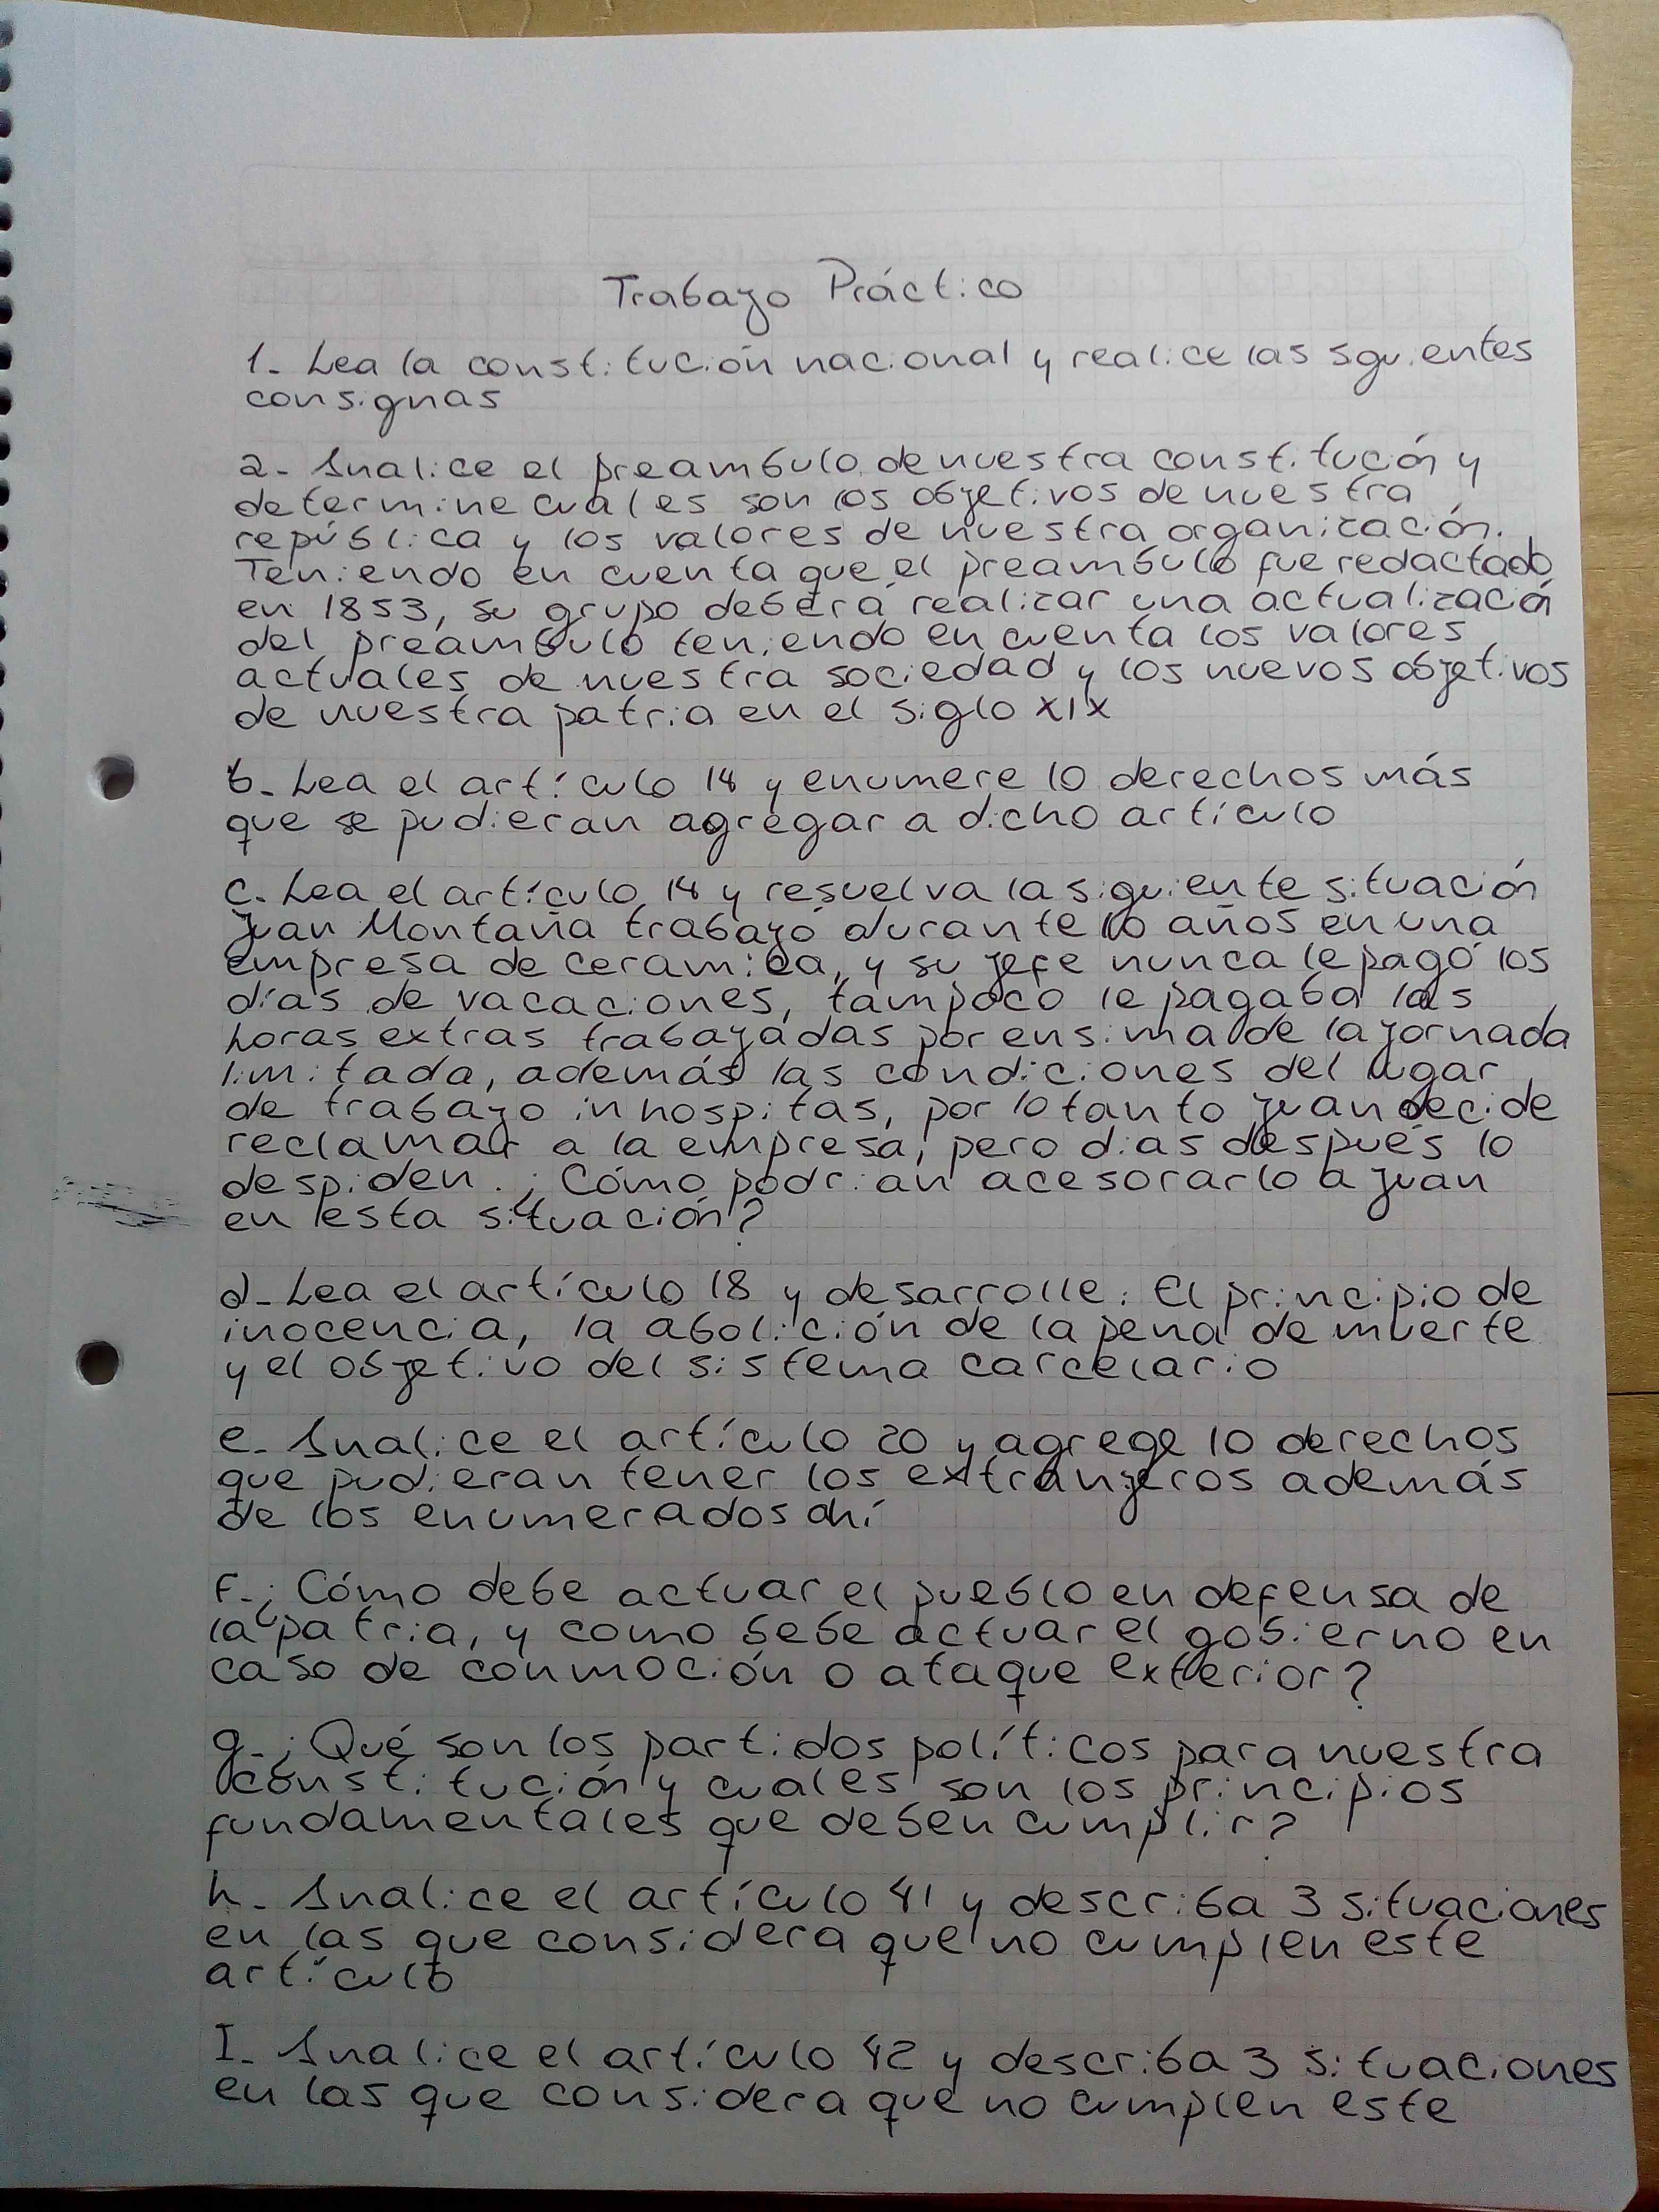 Trabajo Práctico
1- Lea la constitución nacional y realice las sguientes
consignas
a- Analice el preambulo de nuestra constitución y
determine cuales son los objetivos de nuestra
república y los valores de nuestra organización.
Teniendo en cuenta que el preambulo fue redactado
en 1853, su grupo deberá realizar una actualización
del preambulo teniendo en cuenta los valores
actuales de nuestra sociedad y los nuevos objetivos
de nuestra patria en el siglo XIX
b- Lea el artículo 14 y enumere 10 derechos más
que se pudieran agregar a dicho artículo
c- Lea el artículo 14 y resuelva la siguiente situación
Juan Montaña trabajó durante 10 años en una
empresa de ceramica, y su jefe nunca le pagó los
días de vacaciones, tampoco le pagaba las
horas extras trabajadas por ensima de la jornada
limitada, además las condiciones del lugar
de trabajo inhospitas, por lo tanto Juan decide
reclamar a la empresa, pero dias después lo
despiden. ¿Cómo podrian acesorarlo a Juan
en esta situación?
d- Lea el artículo 18 y desarrolle: El principio de
inocencia, la abolición de la pena de muerte
y el objetivo del sistema carcelario
e- Analice el artículo 20 y agrege 10 derechos
que pudieran tener los extranjeros además
de los enumerados ahí
F- ¿Cómo debe actuar el pueblo en defensa de
la patria, y como bebe actuar el gobierno en
caso de conmoción o ataque exterior?
g- ¿Qué son los partidos políticos para nuestra
constitución y cuales son los principios
fundamentales que deben cumplir?
h- Analice el artículo 41 y describa 3 situaciones
en las que considera que no cumplen este
artículo
I- Analice el artículo 42 y describa 3 situaciones
en las que considera que no cumplen este